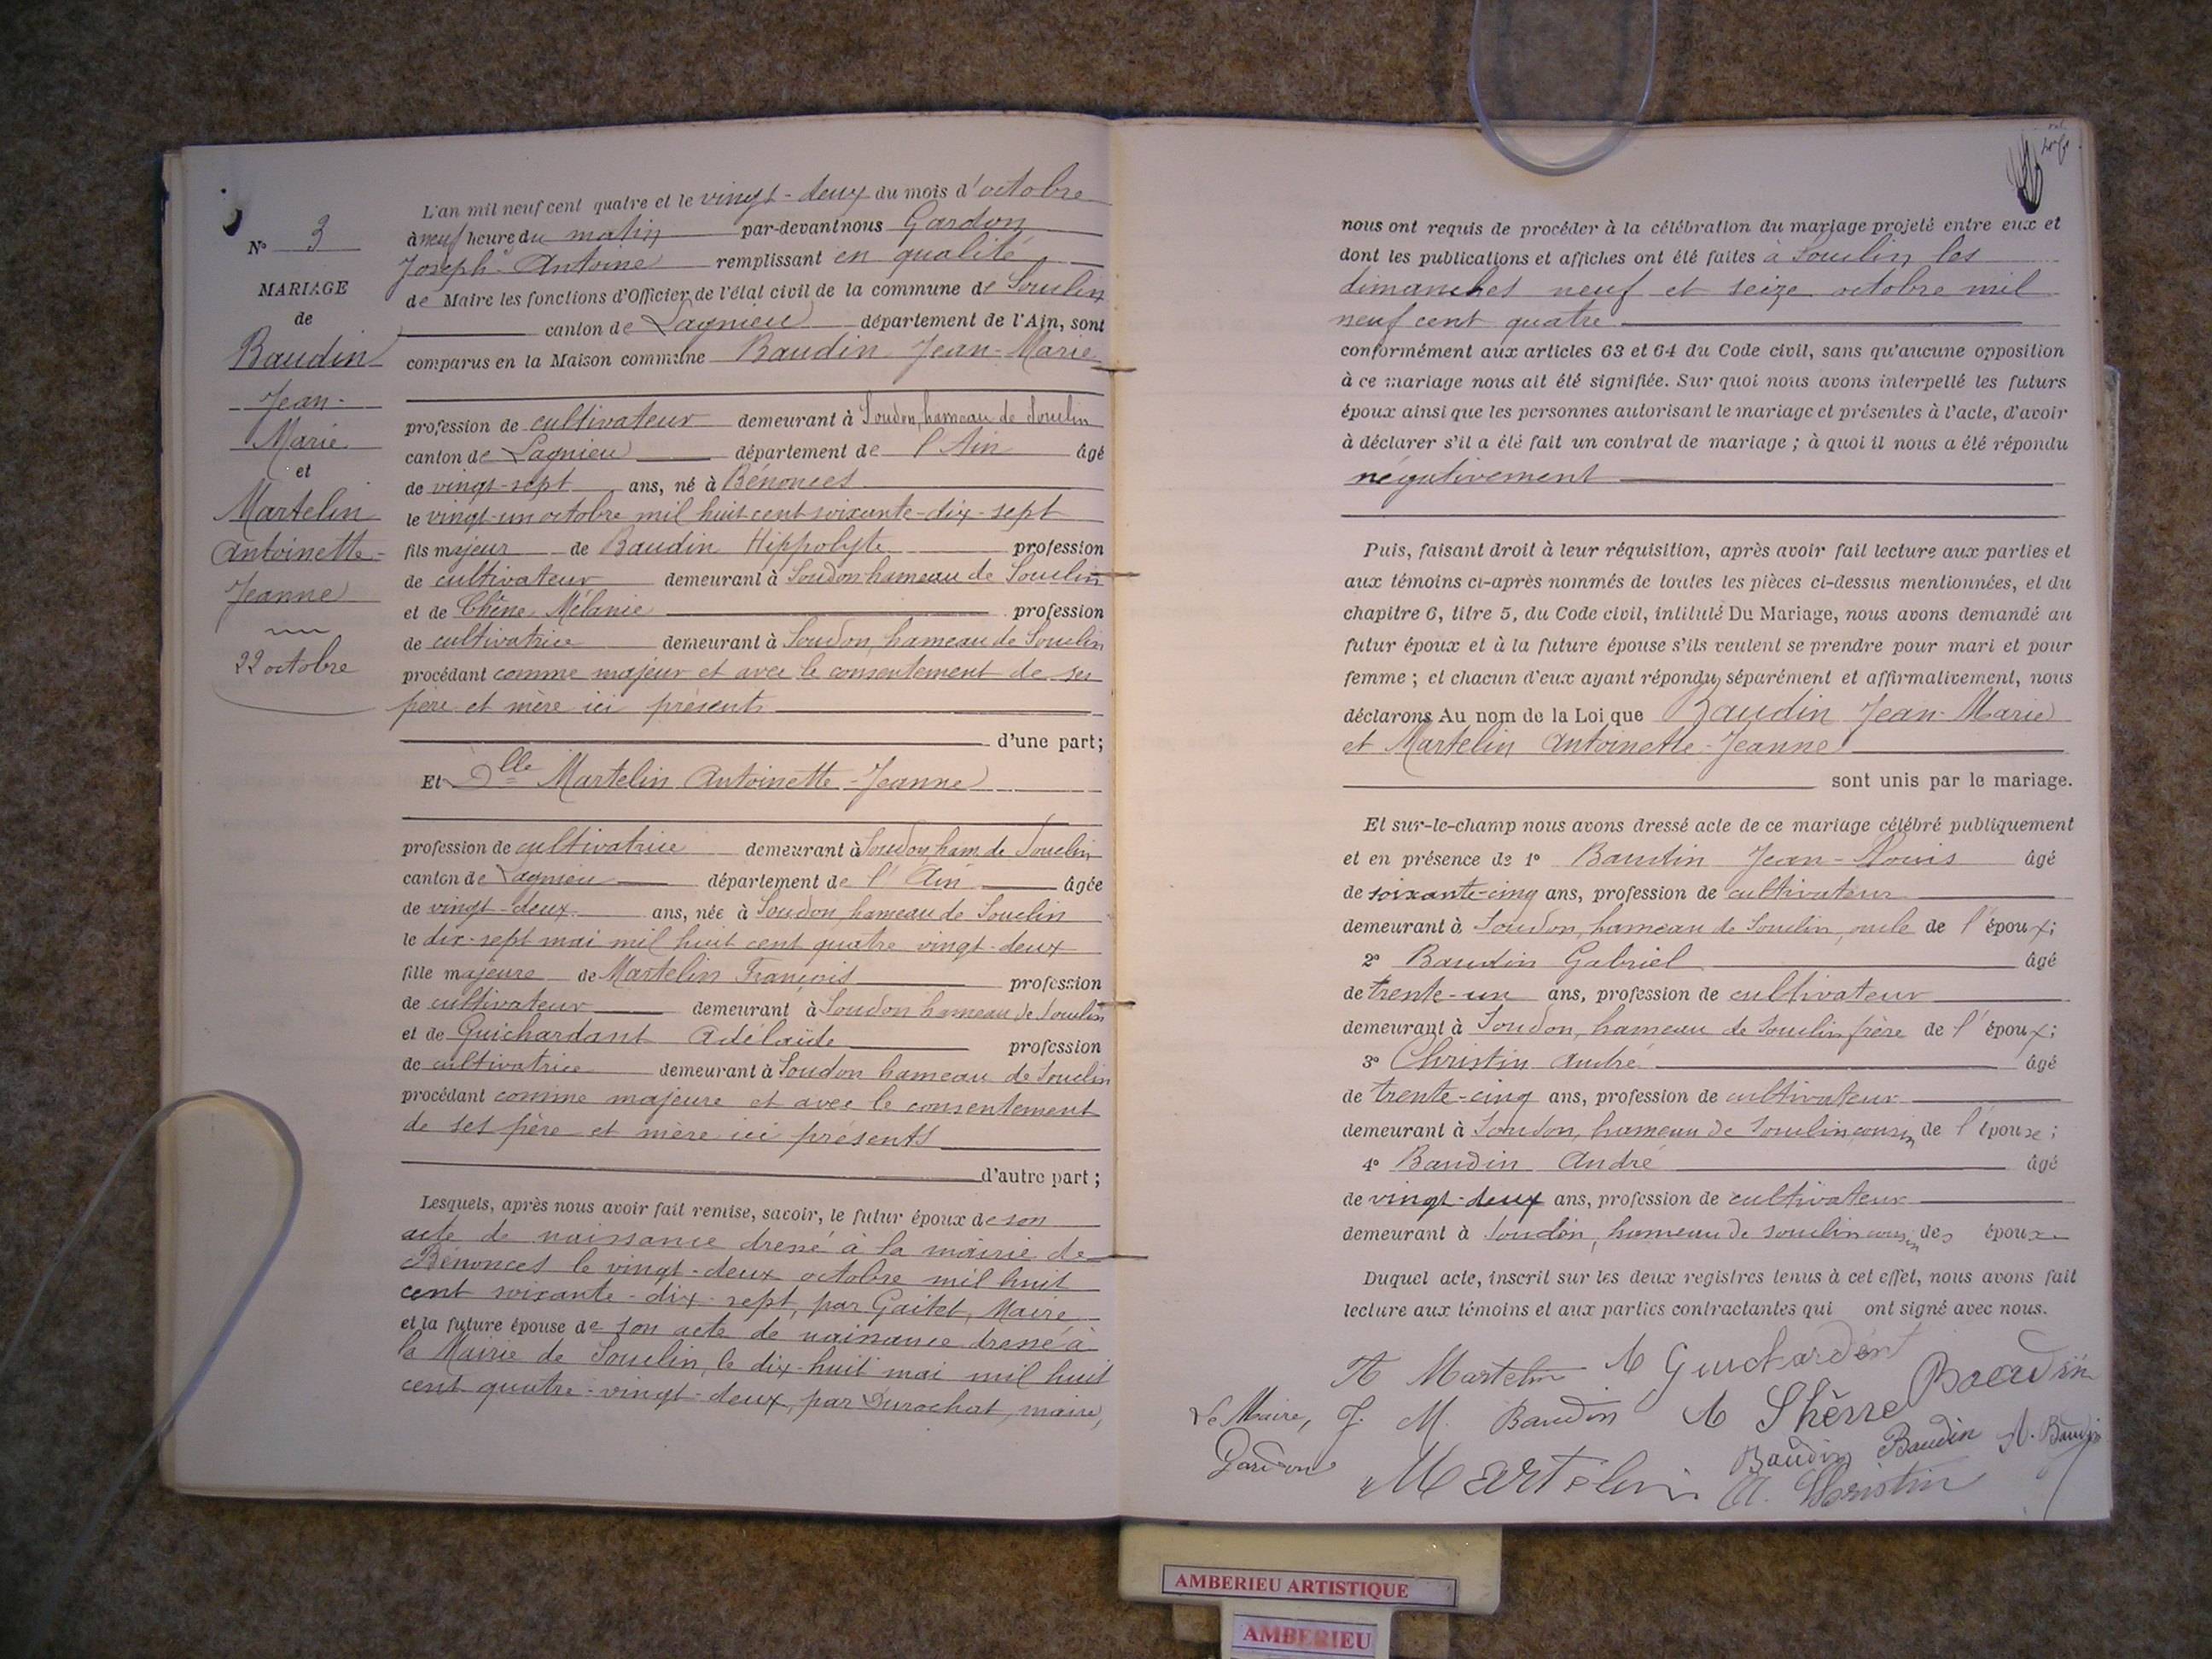 N° 3
MARIAGE
de
Baudin
Jean-
Marie
et
Martelin
Antoinette-
Jeanne
22 octobre
L'an mil neuf cent quatre et le vingt-deux du mois d'octobre
à neuf heures du matin par-devant nous Gardon
Joseph-Antoine remplissant en qualité
de Maire les fonctions d'Officier de l'état civil de la commune de Souclin
canton de Lagnieu département de l'Ain, sont
comparus en la Maison commune Baudin Jean-Marie
profession de cultivateur demeurant à Soudon, hameau de Souclin
canton de Lagnieu département de l'Ain âgé
de vingt-sept ans, né à Bénonces
le vingt-un octobre mil huit cent soixante-dix-sept
fils majeur de Baudin Hippolyte profession
de cultivateur demeurant à Soudon hameau de Souclin
et de Chêne Mélanie profession
de cultivatrice demeurant à Soudon, hameau de Souclin
procédant comme majeur et avec le consentement de ses
père et mère ici présents
d'une part;
Et Dlle Martelin Antoinette-Jeanne
profession de cultivatrice demeurant à Soudon, ham. de Souclin
canton de Lagnieu département de l'Ain âgée
de vingt-deux ans, née à Soudon, hameau de Souclin
le dix-sept mai mil huit cent quatre vingt-deux
fille majeure de Martelin François profession
de cultivateur demeurant à Soudon hameau de Souclin
et de Guichardant Adélaïde profession
de cultivatrice demeurant à Soudon hameau de Souclin
procédant comme majeure et avec le consentement
de ses père et mère ici présents
d'autre part;
Lesquels, après nous avoir fait remise, savoir, le futur époux de son
acte de naissance dressé à la mairie de
Bénonces le vingt-deux octobre mil huit
cent soixante-dix-sept, par Gaitet, Maire
et la future épouse de son acte de naissance dressé à
la Mairie de Souclin, le dix-huit mai mil huit
cent quatre-vingt-deux, par Durochat, maire,
nous ont requis de procéder à la célébration du mariage projeté entre eux et
dont les publications et affiches ont été faites à Souclin les
dimanches neuf et seize octobre mil
neuf cent quatre
conformément aux articles 63 et 64 du Code civil, sans qu'aucune opposition
à ce mariage nous ait été signifiée. Sur quoi nous avons interpellé les futurs
époux ainsi que les personnes autorisant le mariage et présentes à l'acte, d'avoir
à déclarer s'il a été fait un contrat de mariage; à quoi il nous a été répondu
négativement
Puis, faisant droit à leur réquisition, après avoir fait lecture aux parties et
aux témoins ci-après nommés de toutes les pièces ci-dessus mentionnées, et du
chapitre 6, titre 5, du Code civil, intitulé Du Mariage, nous avons demandé au
futur époux et à la future épouse s'ils veulent se prendre pour mari et pour
femme; et chacun d'eux ayant répondu séparément et affirmativement, nous
déclarons Au nom de la Loi que Baudin Jean-Marie
et Martelin Antoinette-Jeanne
sont unis par le mariage.
Et sur-le-champ nous avons dressé acte de ce mariage célébré publiquement
et en présence de 1° Baudin Jean-Louis âgé
de soixante-cinq ans, profession de cultivateur
demeurant à Soudon, hameau de Souclin, oncle de l'époux;
2° Baudin Gabriel âgé
de trente-un ans, profession de cultivateur
demeurant à Soudon, hameau de Souclin frère de l'époux;
3° Christin André âgé
de trente-cinq ans, profession de cultivateur
demeurant à Soudon, hameau de Souclin cousin de l'épouse;
4° Baudin André âgé
de vingt-deux ans, profession de cultivateur
demeurant à Soudon, hameau de Souclin cousin des époux
Duquel acte, inscrit sur les deux registres tenus à cet effet, nous avons fait
lecture aux témoins et aux parties contractantes qui ont signé avec nous.
A Martelin A Guichardent
Baudin
Le Maire, J. M. Baudin
Gardon
Baudin Baudin A. Baudin
Martelin A. Christin
AMBERIEU ARTISTIQUE
AMBERIEU